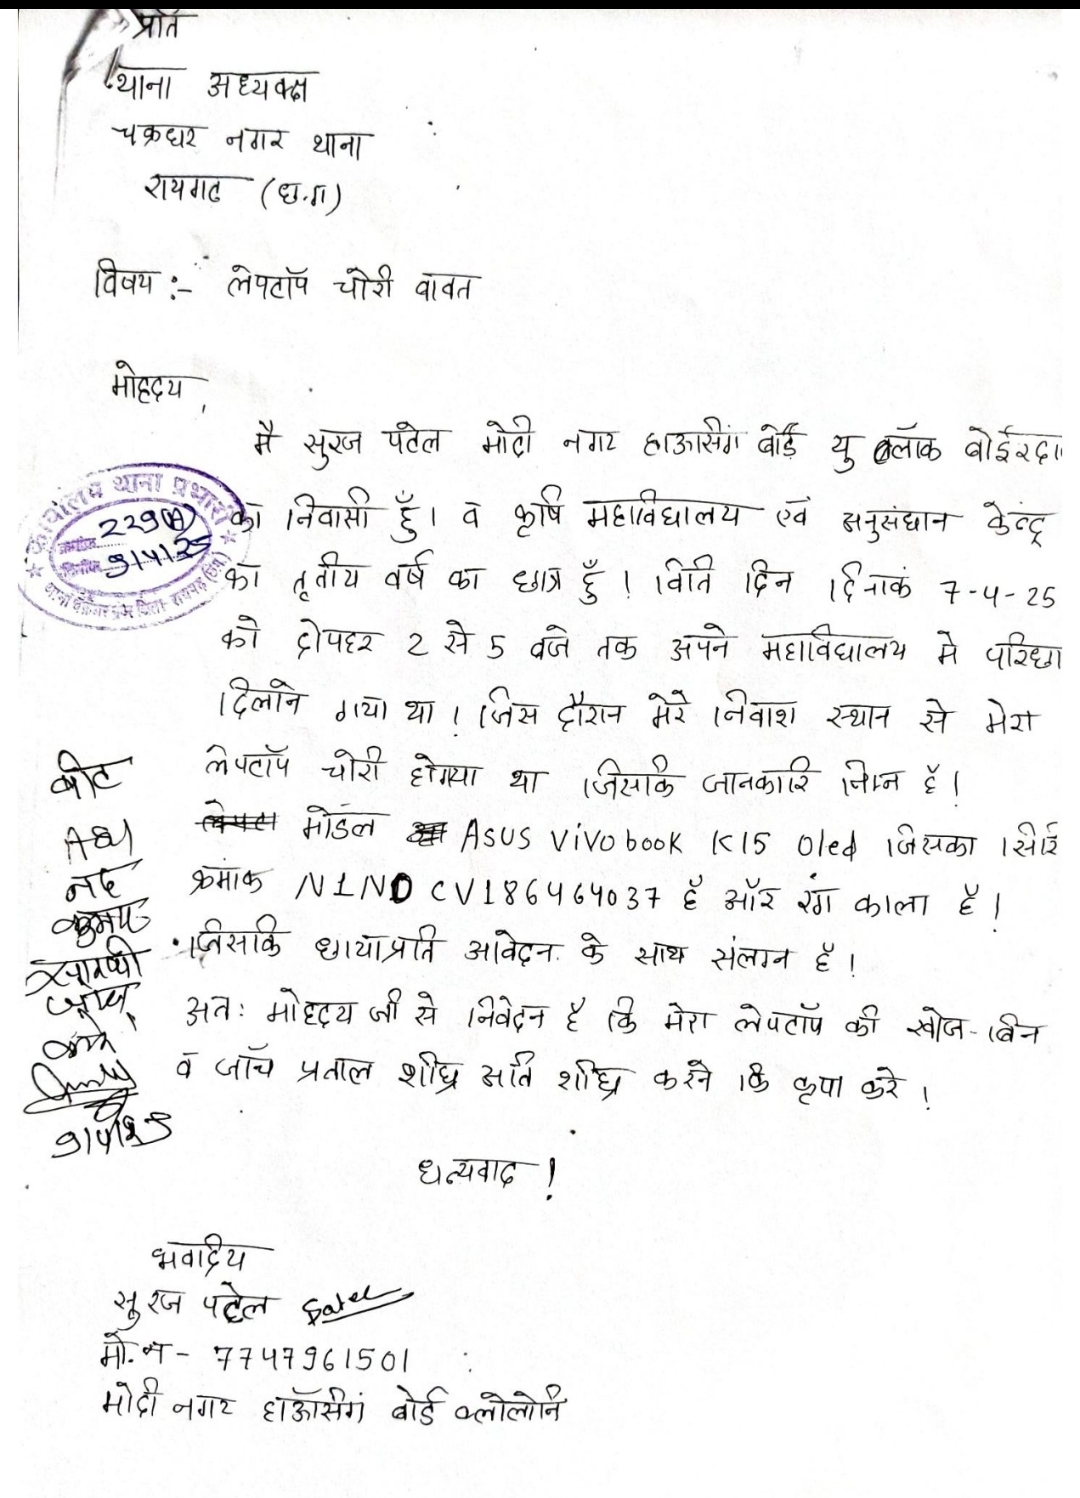 प्रति
थाना अध्यक्ष
चक्रधर नगर थाना
रायगढ (छ.ग)
विषय :- लेपटॉप चोरी वावत
मोहदय,
मै सुरज पटेल मोदी नगर हाऊसिंग बोर्ड यु ब्लॉक बोईरदा
का निवासी हुँ। व कृषि महाविद्यालय एवं अनुसंधान केन्द्र
का तृतीय वर्ष का छात्र हुँ। विति दिन दिनाकं 7-4-25
को दोपहर 2 से 5 वजे तक अपने महाविद्यालय मे परिछा
दिलाने गया था। जिस दौरान मेरे निवाश स्थान से मेरा
लेपटॉप चोरी होगया था जिसकि जानकारि निम्न है।
मोडल ASUS Vivobook K15 Oled जिसका सिरि
क्रमांक N1N0CV186464037 है और रंग काला है।
जिसकि छायाप्रति आवेदन के साथ संलग्न है।
अतः मोहदय जी से निवेदन है कि मेरा लेपटॉप की खोज-बिन
व जाँच प्रताल शीघ्र अति शीघ्र करने कि कृपा करे।
धन्यवाद!
भवादिय
सुरज पटेल Patel
मो.न - 7747961501
मोदी नगर हाऊसिंग बोर्ड क्लोलोनि
कार्यालय थाना प्रभारी
229(A)
क्रमांक
दिनांक 9/4/25
बीट
9/4/25